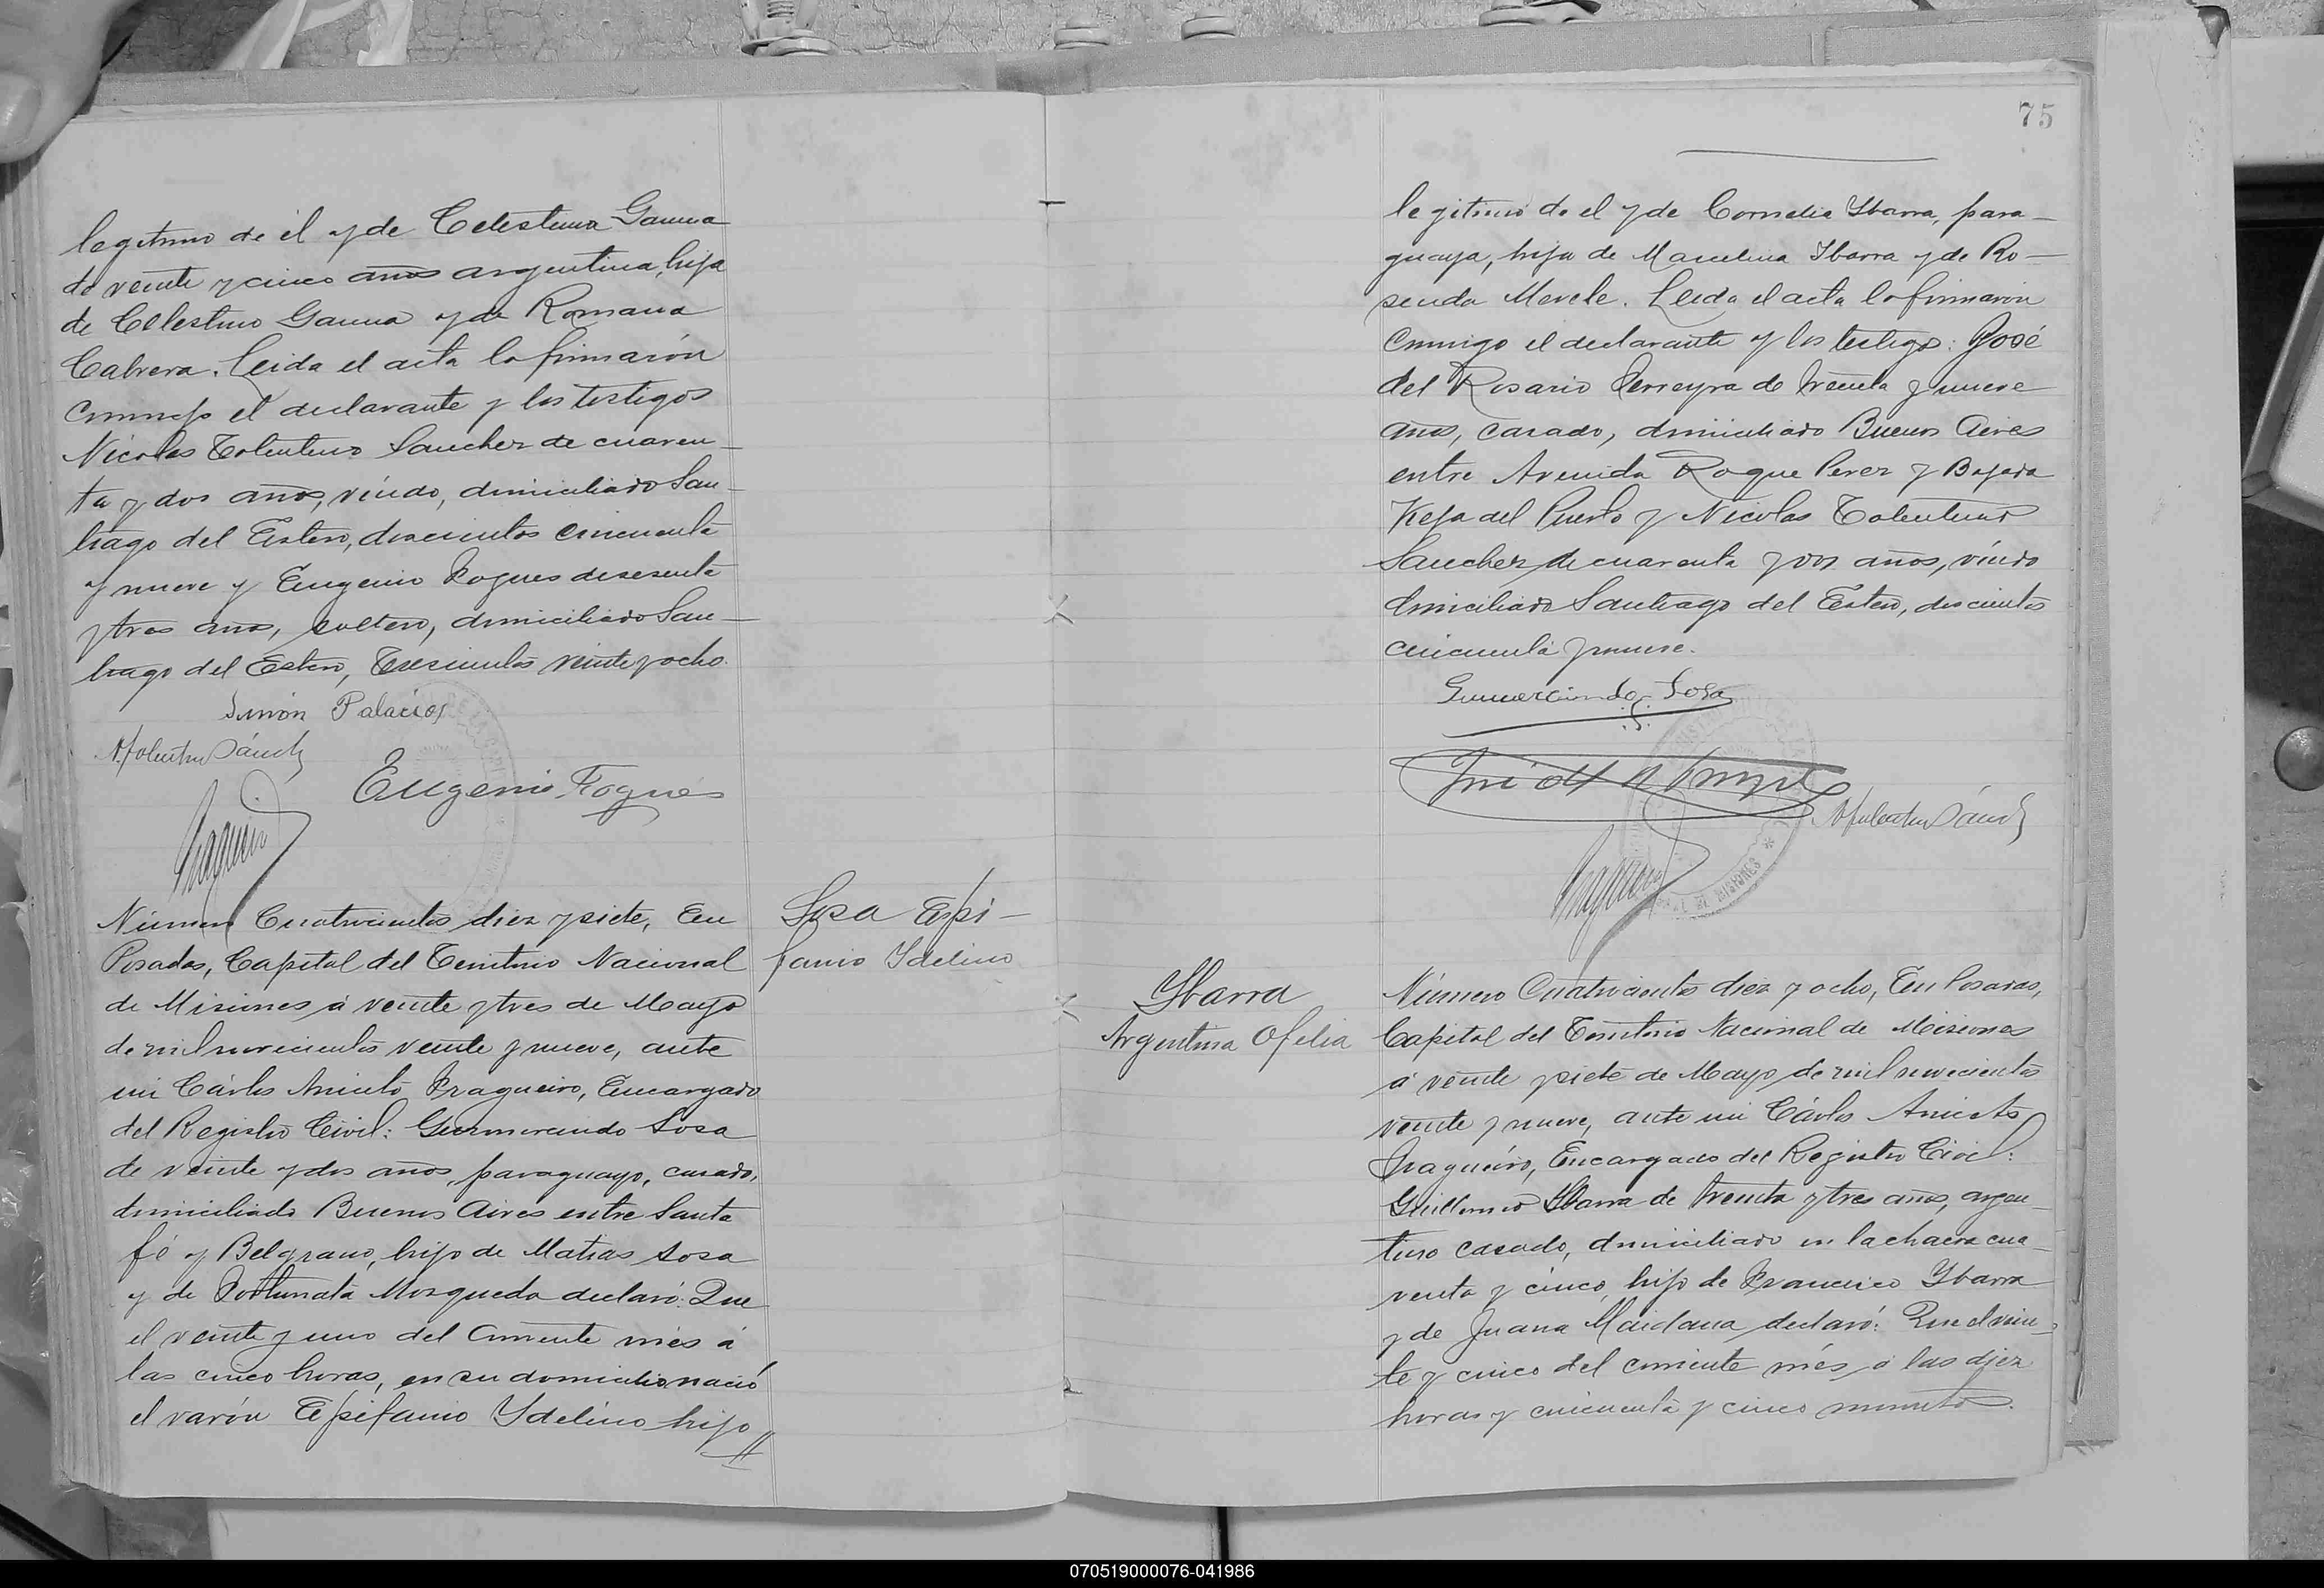 legitimo de él y de Celestina Gauna
de veinte y cinco años argentina, hija
de Celestino Gauna y de Romana
Cabrera. Leida el acta la firmarón
conmigo el declarante y los testigos
Nicolas Tolentino Sanchez de cuaren-
ta y dos años, viudo, domiciliado San-
tiago del Estero, doscientos cincuenta
y nueve y Eugenio Fogues de sesenta
y tres años, soltero, domiciliado San-
tiago del Estero, trescientos veinte y ocho.
Simón Palacios
N. Tolentino Sánch
Eugenio Fogués
Número Cuatrocientos diez y siete, En
Posadas, Capital del Territorio Nacional
de Misiones á veinte y tres de Mayo
de mil novecientos veinte y nueve, ante
mi Cárlos Aniceto Fragueiro, Encargado
del Registro Civil: Gumercindo Sosa
de veinte y dos años, paraguayo, casado,
domiciliado Buenos Aires entre Santa
fé y Belgrano, hijo de Matias Sosa
y de Fortunata Mosqueda declaró: Que
el veinte y uno del corriente més á
las cinco horas, en su domicilio nació
el varón Epifanio Ydelino hijo
Sosa Epi-
fanio Ydelino
75
legitimo de el y de Cornelia Ybarra, para-
guaya, hija de Marcelina Ybarra y de Ro-
senda Merele. Leida el acta la firmarón
conmigo el declarante y los testigos: José
del Rosario Ferreyra de treinta y nueve
años, casado, domiciliado Buenos Aires
entre Avenida Roque Perez y Bajada
Vieja del Puerto y Nicolas Tolentino
Sanchez de cuarenta y dos años, viudo
domiciliado Santiago del Estero, doscientos
cincuenta y nueve.
Gumercindo Sosa
N. Tolentino Sánch
MISIONES
Ybarra
Argentina Ofelia
Número Cuatrocientos diez y ocho, En Posadas,
Capital del Territorio Nacional de Misiones
á veinte y siete de Mayo de mil novecientos
veinte y nueve, ante mi Cárlos Aniceto
Fragueiro, Encargado del Registro Civil:
Guillermo Ybarra de treinta y tres años, argen-
tino casado, domiciliado en la chacra cua-
renta y cinco, hijo de Francisco Ybarra
y de Juana Maidana declaró: Que el vein-
te y cinco del corriente més á las diez
horas y cincuenta y cinco minutos.
070519000076-041986